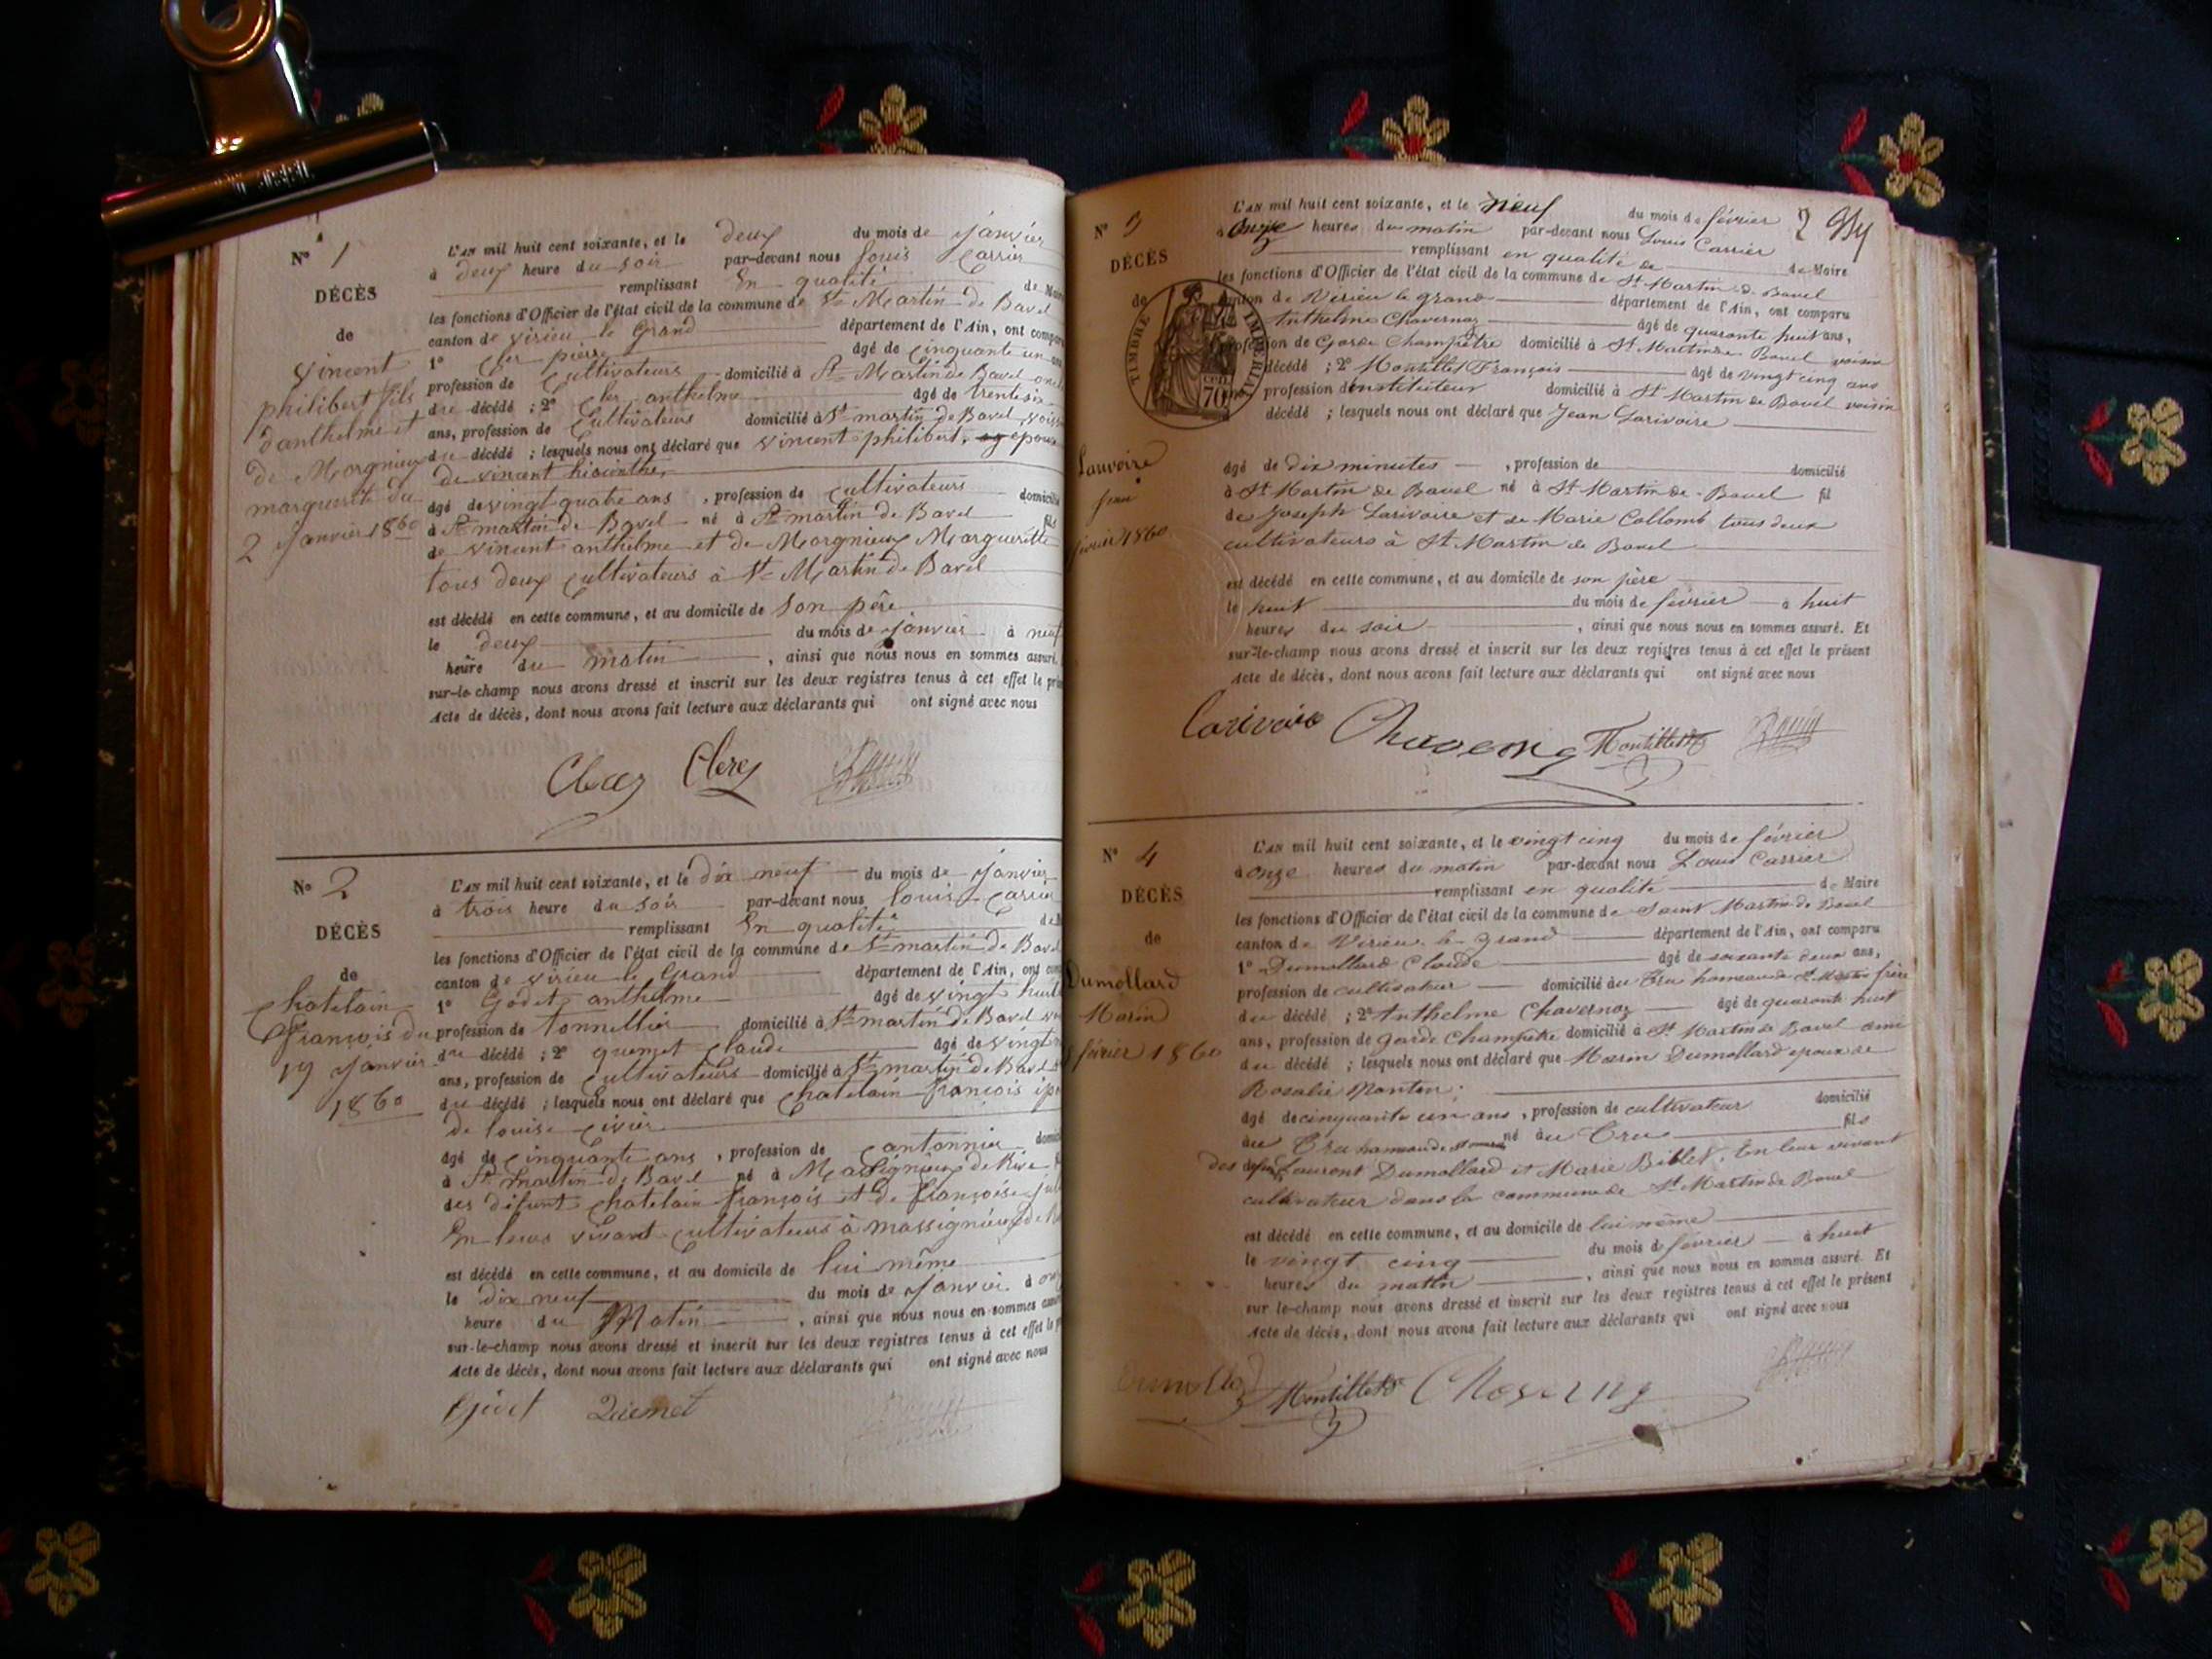 N° 1
DÉCÈS
de
Vincent
philibert fils
danthelme et
de Morgnieux
marguerite du
2 Janvier 1860
L'AN mil huit cent soixante, et le deux du mois de Janvier
à deux heure du soir par-devant nous Louis Carrier
remplissant En qualité de Maire
les fonctions d'Officier de l'état civil de la commune de St Martin de Bavel
canton de Virieu le Grand département de l'Ain, ont comparu
1° Clerc pierre âgé de cinquante un ans
profession de Cultivateurs domicilié à St Martin de Bavel oncle
du décédé ; 2° Clerc anthelme âgé de trente six
ans, profession de Cultivateurs domicilié à St martin de Bavel voisin
du décédé ; lesquels nous ont déclaré que Vincent philibert, époux
de Vincent hiacinthe
âgé de vingt quatre ans , profession de cultivateurs domicilié
à St martin de Bavel né à St martin de Bavel fils
de Vincent anthelme et de Morgnieux Marguerite
tous deux cultivateurs à St Martin de Bavel
est décédé en cette commune, et au domicile de Son père
le deux du mois de Janvier à neuf
heure du matin , ainsi que nous nous en sommes assuré.
sur-le-champ nous avons dressé et inscrit sur les deux registres tenus à cet effet le
Acte de décès, dont nous avons fait lecture aux déclarants qui ont signé avec nous
Clerc Clerc
N° 2
DÉCÈS
de
Chatelain
François du
19 Janvier
1860
L'AN mil huit cent soixante, et le dix neuf du mois de Janvier
à trois heure du Soir par-devant nous Louis Carrier
remplissant En qualité de
les fonctions d'Officier de l'état civil de la commune de St martin de Bavel
canton de Virieu le Grand département de l'Ain, ont
1° Godet anthelme âgé de vingt huit
profession de tonnellier domicilié à St martin de Bavel
du décédé ; 2° quemet claude âgé de vingt
ans, profession de Cultivateurs domicilié à St martin de Bavel
du décédé ; lesquels nous ont déclaré que Chatelain françois
de louise
âgé de Cinquante ans , profession de Cantonnier
à St martin de Bavel né à Massignieux de Rive
des défunt Chatelain françois et de françoise
En leurs vivant Cultivateurs à massignieux de
est décédé en cette commune, et au domicile de lui même
le dix neuf du mois de Janvier à
heure du Matin , ainsi que nous nous en sommes
sur-le-champ nous avons dressé et inscrit sur les deux registres tenus à cet effet le
Acte de décès, dont nous avons fait lecture aux déclarants qui ont signé avec nous
Quemet
2
N° 3
DÉCÈS
de
TIMBRE IMPERIAL
70
Larivoire
Jean
février 1860
L'AN mil huit cent soixante, et le neuf du mois de février
à onze heures du matin par-devant nous Louis Carrier
remplissant en qualité de de Maire
les fonctions d'Officier de l'état civil de la commune de St Martin de Bavel
canton de Virieu le grand département de l'Ain, ont comparu
Anthelme Chavernoz âgé de quarante huit ans,
profession de Garde Champêtre domicilié à St Martin de Bavel voisin
décédé ; 2° Montillet François âgé de vingt cinq ans
profession d'instituteur domicilié à St Martin de Bavel voisin
décédé ; lesquels nous ont déclaré que Jean Larivoire
âgé de dix minutes , profession de domicilié
à St Martin de Bavel né à St Martin de Bavel fil
de Joseph Larivoire et de Marie Collomb tous deux
cultivateurs à St Martin de Bavel
est décédé en cette commune, et au domicile de son père
le huit du mois de février à huit
heures du soir , ainsi que nous nous en sommes assuré. Et
sur-le-champ nous avons dressé et inscrit sur les deux registres tenus à cet effet le présent
Acte de décès, dont nous avons fait lecture aux déclarants qui ont signé avec nous
Larivoire Montillet
N° 4
DÉCÈS
de
Dumollard
Marin
février 1860
L'AN mil huit cent soixante, et le vingt cinq du mois de février
à onze heures du matin par-devant nous Louis Carrier
remplissant en qualité de Maire
les fonctions d'Officier de l'état civil de la commune de Saint Martin de Bavel
canton de Virieu le grand département de l'Ain, ont comparu
1° Dumollard Claude âgé de soixante deux ans,
profession de cultivateur domicilié au Cru hameau de St Martin frère
du décédé ; 2° Anthelme Chavernoz âgé de quarante huit
ans, profession de garde Champêtre domicilié à St Martin de Bavel ami
du décédé ; lesquels nous ont déclaré que Marin Dumollard époux de
Rosalie
âgé de cinquante un ans , profession de cultivateur domicilié
au Cru hameau de né au Cru fils
des Laurent Dumollard et Marie Billet, En leur vivant
cultivateur dans la commune de St Martin de Bavel
est décédé en cette commune, et au domicile de lui même
le vingt cinq du mois de février à huit
heures du matin , ainsi que nous nous en sommes assuré. Et
sur le-champ nous avons dressé et inscrit sur les deux registres tenus à cet effet le présent
Acte de décès, dont nous avons fait lecture aux déclarants qui ont signé avec nous
Dumollard Montillet